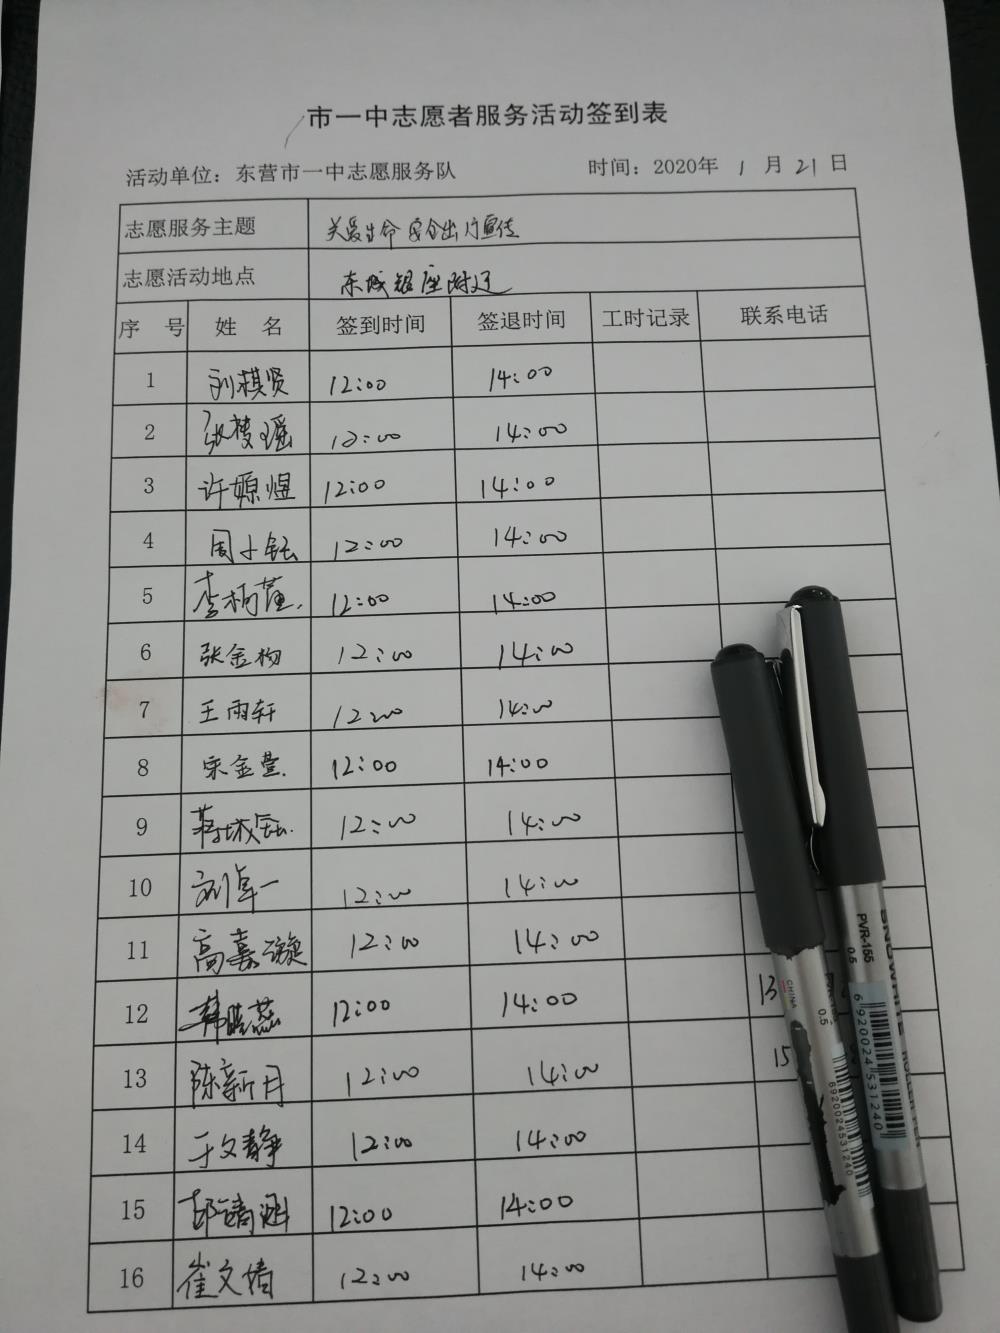 市一中志愿者服务活动签到表
活动单位：东营市一中志愿服务队 时间：2020年 1 月 21 日
志愿服务主题 关爱生命 安全出行宣传
志愿活动地点 东城银座附近
序 号 姓 名 签到时间 签退时间 工时记录 联系电话
1 刘祺贤 12:00 14:00
2 张 瑶 12:00 14:00
3 许嫄煜 12:00 14:00
4 周小钰 12:00 14:00
5 李柄萱 12:00 14:00
6 张金 12:00 14:00
7 王雨轩 12:00 14:00
8 宋金萱 12:00 14:00
9 蒋城钰 12:00 14:00
10 刘卓一 12:00 14:00
11 高嘉璇 12:00 14:00
12 韩晓燕 12:00 14:00 13
13 陈新月 12:00 14:00 15
14 于文静 12:00 14:00
15 12:00 14:00
16 崔文婧 12:00 14:00
PVR-155 0.5
SNOWHITE ROLLER PEN
6920024531240
CHINA
0.5
6920024531240